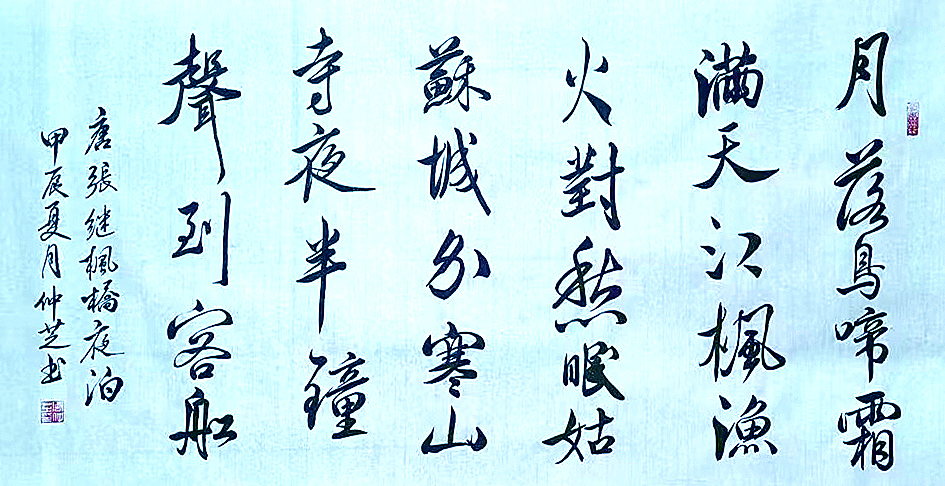 月落烏啼霜
滿天江楓漁
火對愁眠姑
蘇城外寒山
寺夜半鐘
聲到客船
唐張继楓橋夜泊
甲辰夏月仲芝书